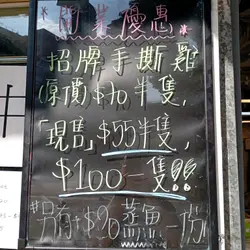 開業優惠
招牌手撕雞
(原價)$70半隻,
「現售」$55半隻,
$100一隻!!
#另有+$20蒸魚一份